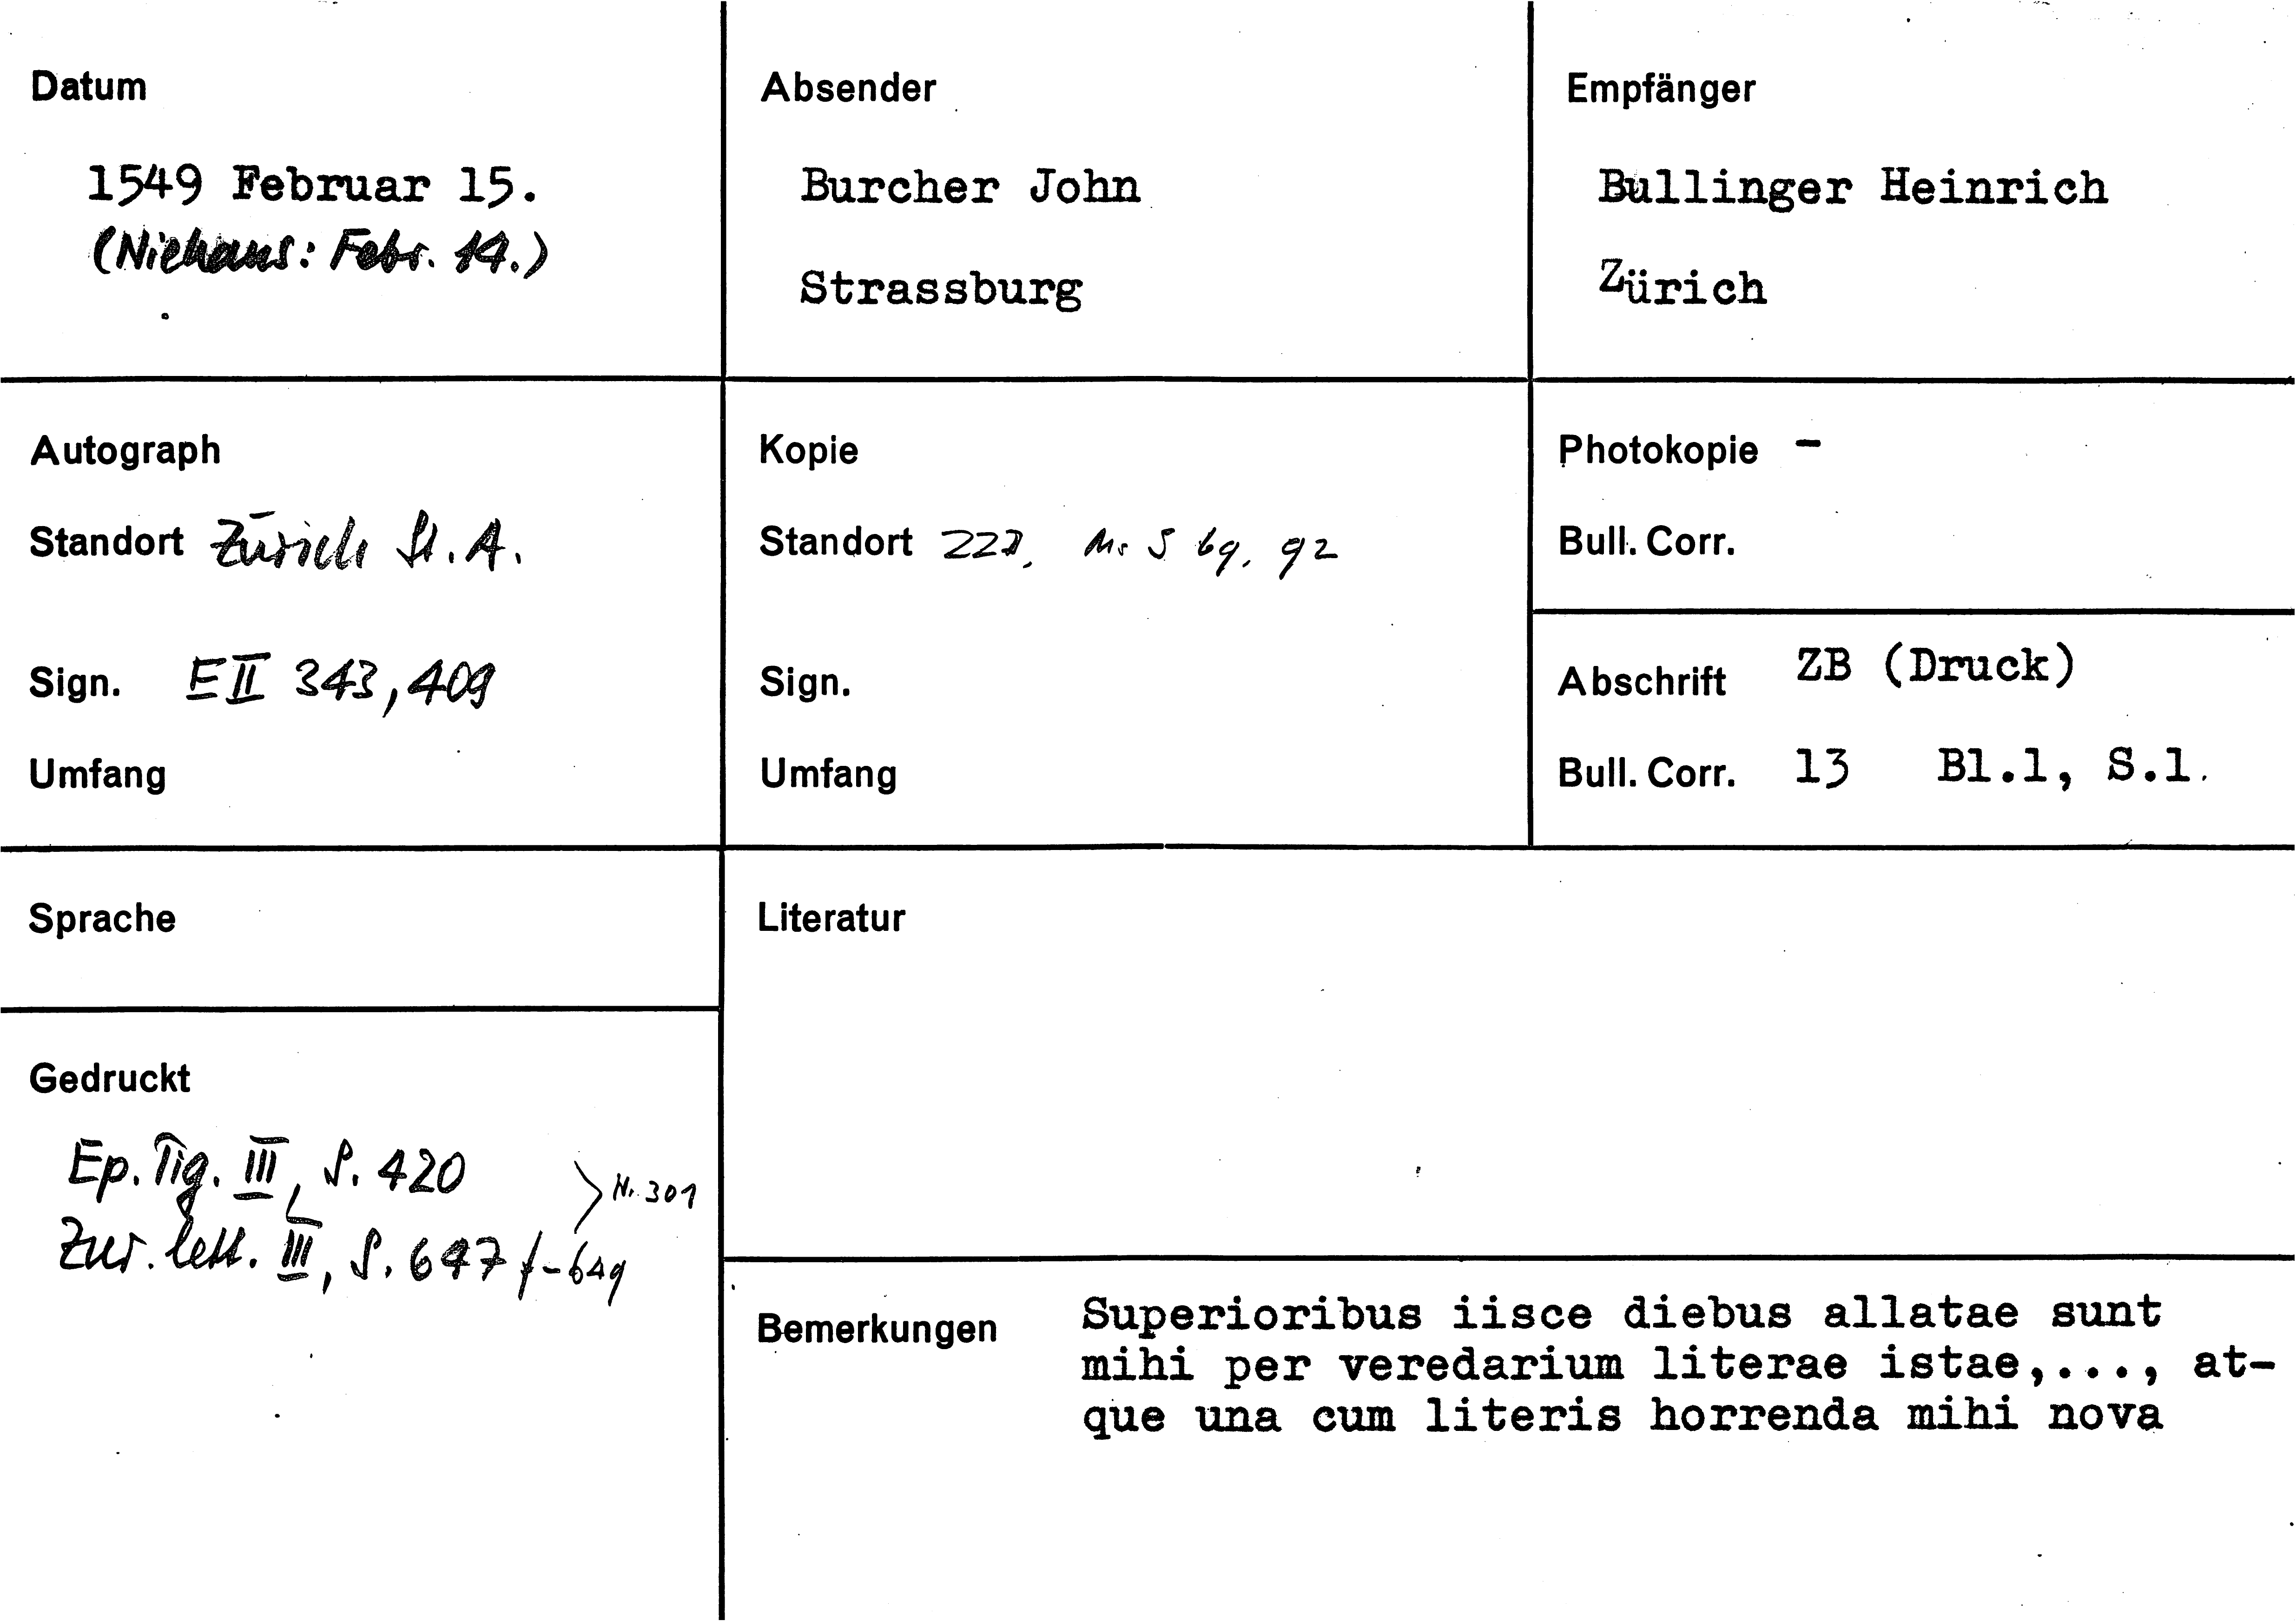 Datum
1549 Februar 15.
(Niehans: Febr. 14.)
Absender
Burcher John
Strassburg
Empfänger
Bullinger Heinrich
Zürich
Autograph
Standort Zürich St. A.
Sign. E II 343, 409
Umfang
Kopie
Standort ZZB, Ms S 69, 92
Sign.
Umfang
Photokopie -
Bull. Corr.
Abschrift ZB (Druck)
Bull. Corr. 13 Bl.1, S.1.
Sprache
Literatur
Gedruckt
Ep. Tig. III, S. 420
Nr. 301
Zur. lett. III, S. 647 f-649
Bemerkungen Superioribus iisce diebus allatae sunt
mihi per veredarium literae istae,..., at-
que una cum literis horrenda mihi nova